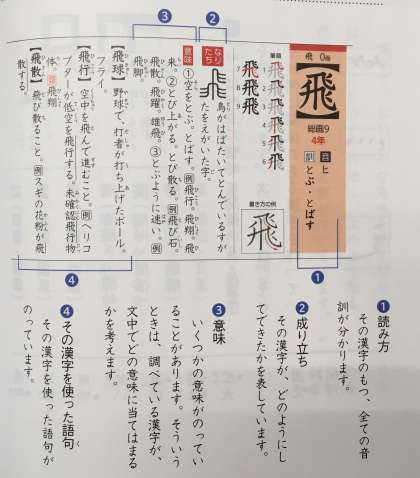 飛 0画
【飛】
総画9
4年
音 ヒ
訓 とぶ・とばす
筆順
飛飛飛飛飛飛
1 2 3 4 5 6
飛飛飛
7 8 9
書き方の例
飛
なりたち
鳥がはばたいてとんでいるすが
たをえがいた字。
意味
①空をとぶ。とばす。例飛行。飛翔。飛
来。②とび上がる。とび散る。例飛び石。
飛散。飛躍。雄飛。③とぶように速い。例
飛脚。
【飛球】野球で、打者が打ち上げたボール。
フライ。
【飛行】空中を飛んで進むこと。例ヘリコ
プターが低空を飛行する。未確認飛行物
体。類飛翔
【飛散】飛び散ること。例スギの花粉が飛
散する。
1
2
3
4
4
❶読み方
その漢字のもつ、全ての音
訓が分かります。
❷成り立ち
その漢字が、どのようにし
てできたかを表しています。
❸意味
いくつかの意味がのってい
ることがあります。そういう
ときは、調べている漢字が、
文中でどの意味に当てはまる
かを考えます。
❹その漢字を使った語句
その漢字を使った語句が
のっています。